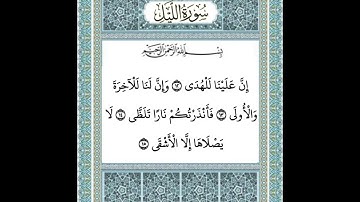 سُورَةُ اللَّيْلِ
بِسْمِ اللَّهِ الرَّحْمَٰنِ الرَّحِيمِ
إِنَّ عَلَيْنَا لَلْهُدَى ١٢ وَإِنَّ لَنَا لَلْآخِرَةَ
وَالْأُولَى ١٣ فَأَنْذَرْتُكُمْ نَارًا تَلَظَّى ١٤ لَا
يَصْلَاهَا إِلَّا الْأَشْقَى ١٥